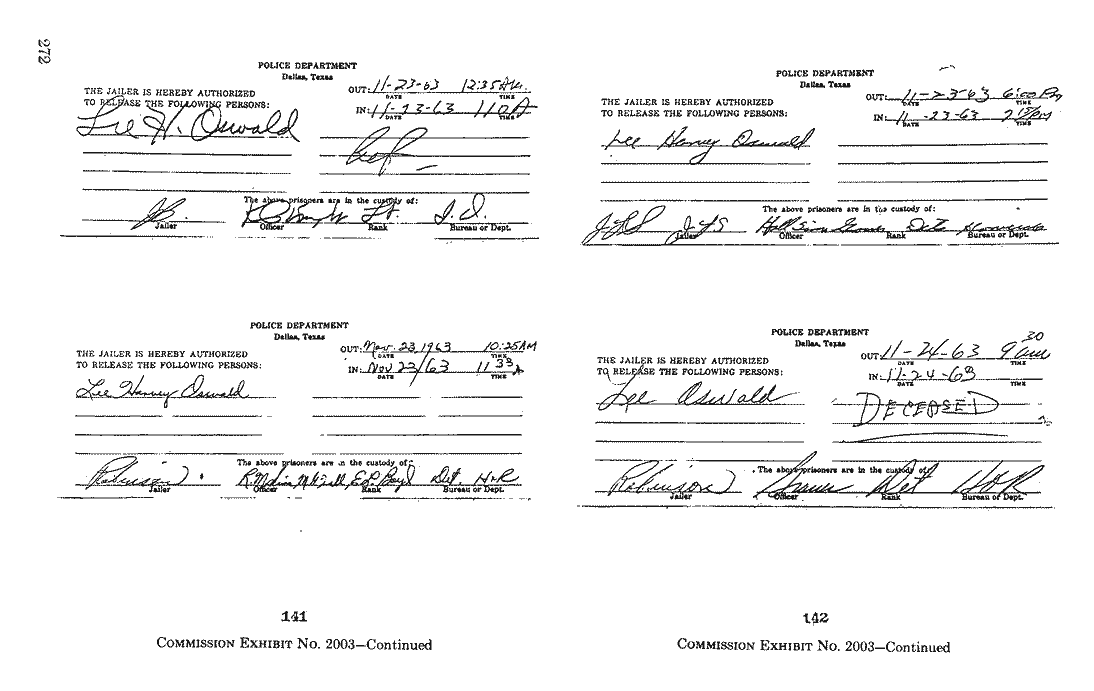 272
POLICE DEPARTMENT
Dallas, Texas
THE JAILER IS HEREBY AUTHORIZED
TO RELEASE THE FOLLOWING PERSONS:
OUT: 11-23-63 12:35 AM.
DATE TIME
IN: 11-23-63 110A
DATE TIME
Lee H. Oswald
The above prisoners are in the custody of:
Lt. I.D.
Jailer Officer Rank Bureau or Dept.
POLICE DEPARTMENT
Dallas, Texas
THE JAILER IS HEREBY AUTHORIZED
TO RELEASE THE FOLLOWING PERSONS:
OUT: Nov. 23, 1963 10:25AM
DATE TIME
IN: Nov 23/63 11 33 A
DATE TIME
Lee Harvey Oswald
The above prisoners are in the custody of:
Robinson Det. H&R
Jailer Officer Rank Bureau or Dept.
141
COMMISSION EXHIBIT No. 2003—Continued
POLICE DEPARTMENT
Dallas, Texas
THE JAILER IS HEREBY AUTHORIZED
TO RELEASE THE FOLLOWING PERSONS:
OUT: 11-23-63 6:00 Pm
DATE TIME
IN: 11-23-63
DATE TIME
Lee Harvey Oswald
The above prisoners are in the custody of:
Jailer Officer Rank Bureau or Dept.
POLICE DEPARTMENT
Dallas, Texas
THE JAILER IS HEREBY AUTHORIZED
TO RELEASE THE FOLLOWING PERSONS:
OUT: 11-24-63 9 30 am
DATE TIME
IN: 11-24-63
DATE TIME
Lee Oswald
DECEASED
The above prisoners are in the custody of:
Robinson Det H&R
Jailer Officer Rank Bureau or Dept.
142
COMMISSION EXHIBIT No. 2003—Continued